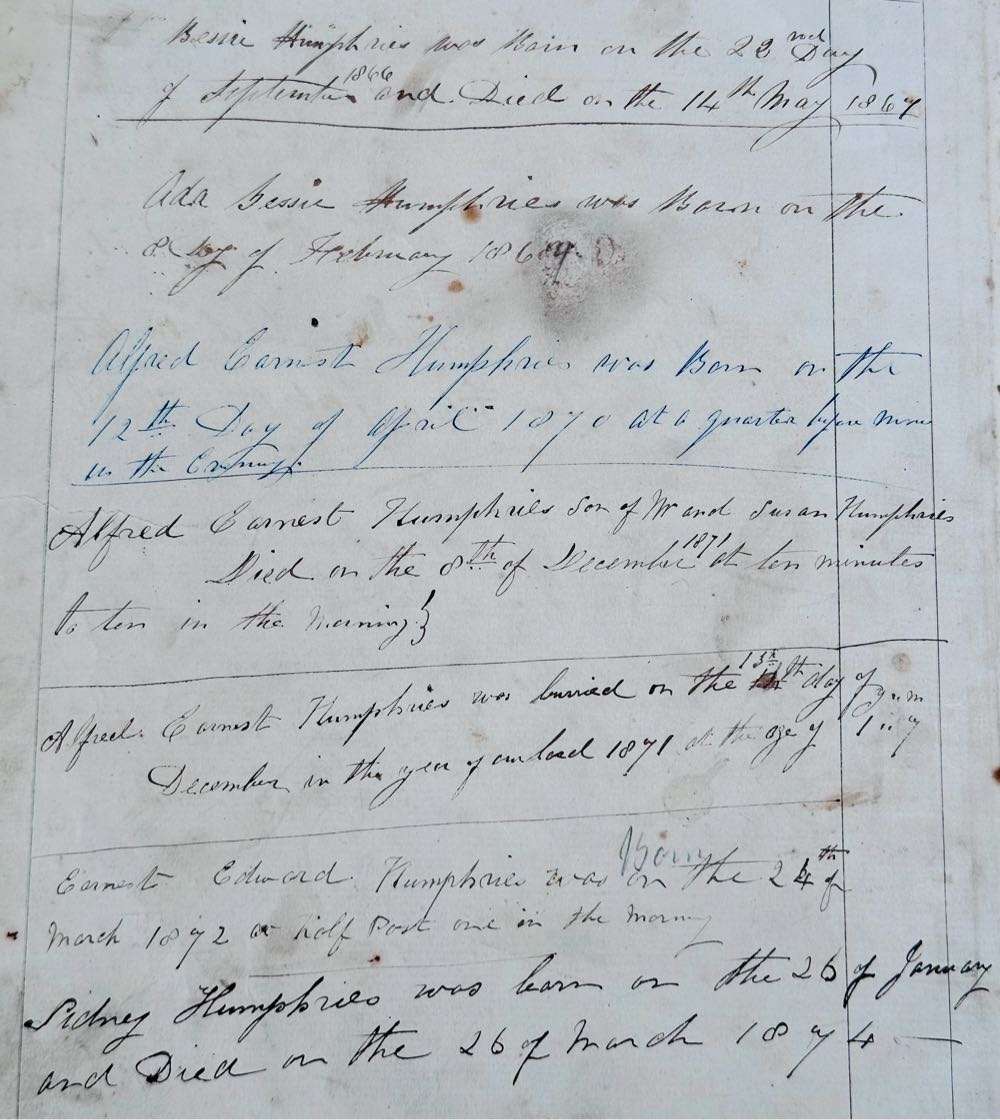 Bessie Humphries was Born on the 22nd Day
of September 1866 and Died on the 14th May 1867
Ada Bessie Humphries was Born on the
8 Day of February 186
Alfred Earnest Humphries was Born on the
12th Day of April 1870 at a quarter before nine
in the Evening.
Alfred Earnest Humphries Son of Wm and Susan Humphries
Died on the 8th of December 1871 at ten minutes
to ten in the Morning
Alfred Earnest Humphries was burried on the 13th day of
December in the year of our Lord 1871 at the age of 1
Earnest Edward Humphries was Born on the 24th of
March 1872 at half Past one in the Morning
Sidney Humphries was born on the 26 of January
and Died on the 26 of March 1874